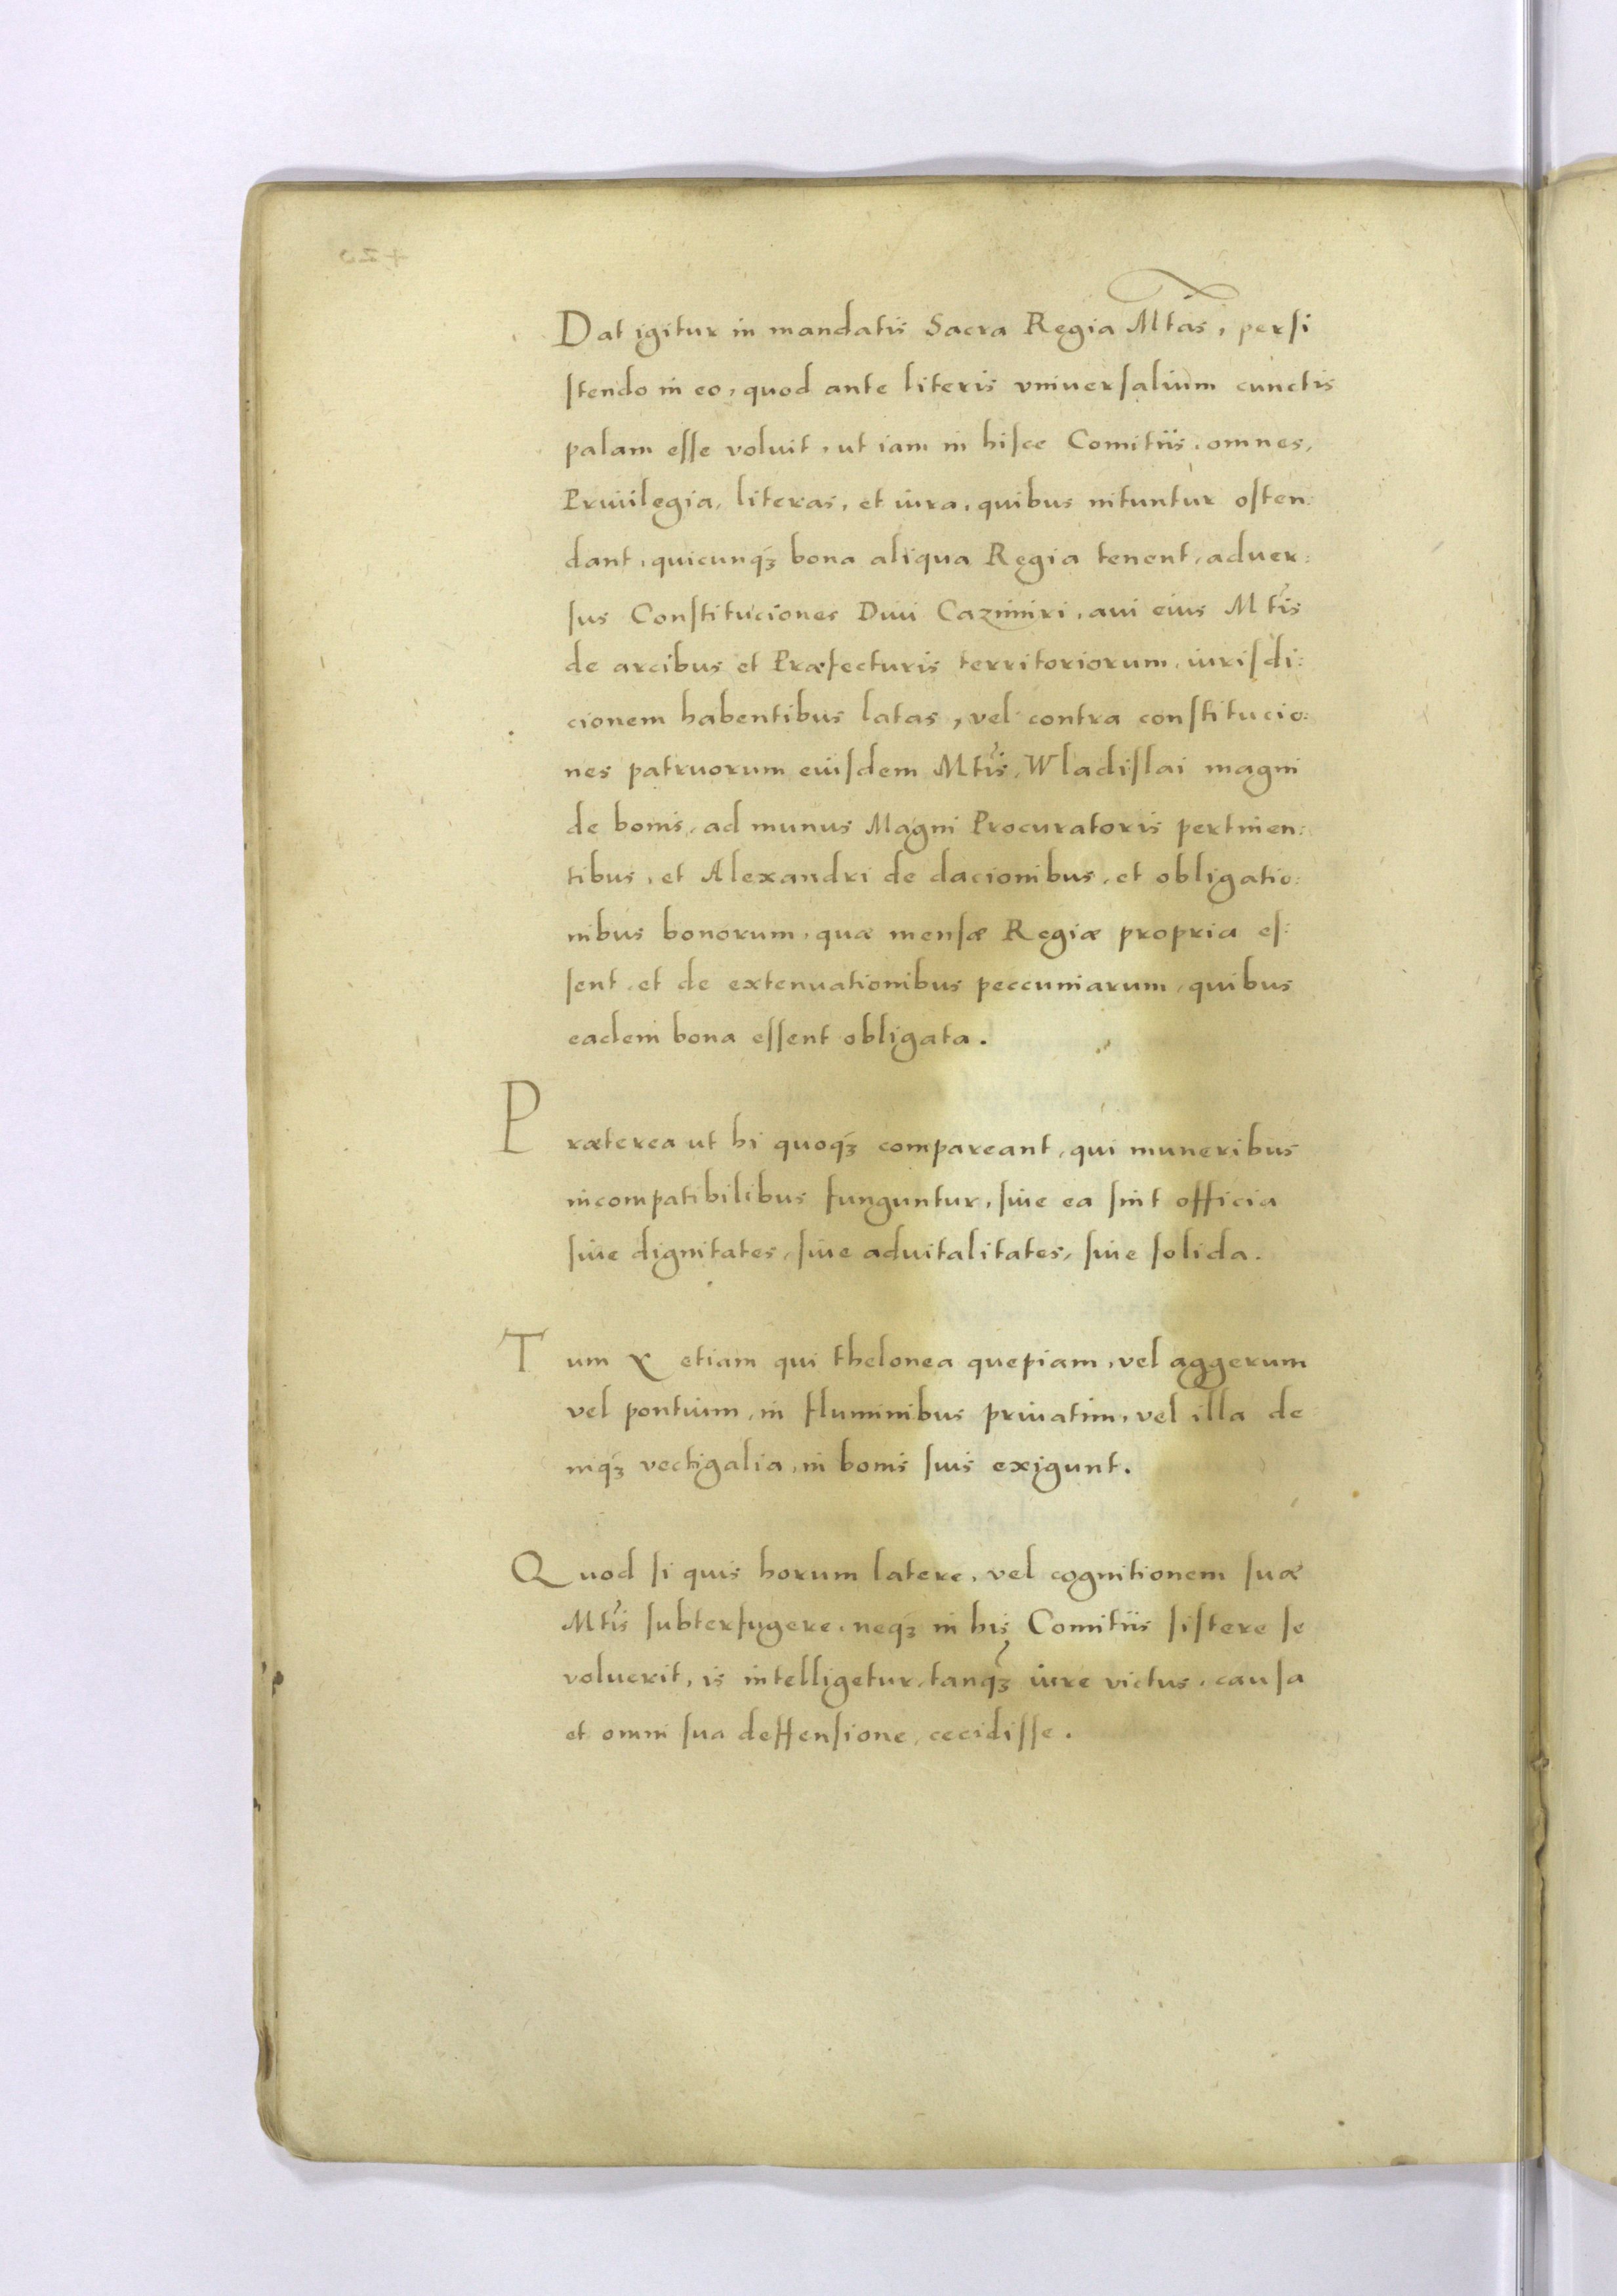 Dat igitur in mandatis Sacra Regia Mtas, persi
stendo in eo, quod ante literis vniuersalium cunctis
palam esse voluit, ut iam in hisce Comitiis, omnes,
Priuilegia, literas, et iura, quibus nituntur osten:
dant, quicunqꝫ bona aliqua Regia tenent, aduer:
sus Constituciones Diui Cazimiri, aui eius Mtis
de arcibus et Præfecturis territoriorum, iurisdi:
cionem habentibus latas, vel contra constitucio:
nes patruorum eiusdem Mtis, Wladislai magni
de bonis, ad munus Magni Procuratoris pertinen:
tibus, et Alexandri de dacionibus, et obligatio:
nibus bonorum, quæ mensæ Regiæ propria es:
sent, et de extenuationibus peccuniarum, quibus
eadem bona essent obligata.
Præterea ut hi quoqꝫ compareant, qui muneribus
incompatibilibus funguntur, siue ea sint officia
siue dignitates, siue aduitalitates, siue solida.
Tum x etiam qui thelonea quepiam, vel aggerum
vel pontium, in fluminibus priuatim, vel illa de
niqꝫ vectigalia, in bonis suis exigunt.
Quod si quis horum latere, vel cognitionem suæ
Mtis subterfugere, neqꝫ in his Comitiis sistere se
voluerit, is intelligetur, tanqꝫ iure victus, causa
et omni sua deffensione, cecidisse.